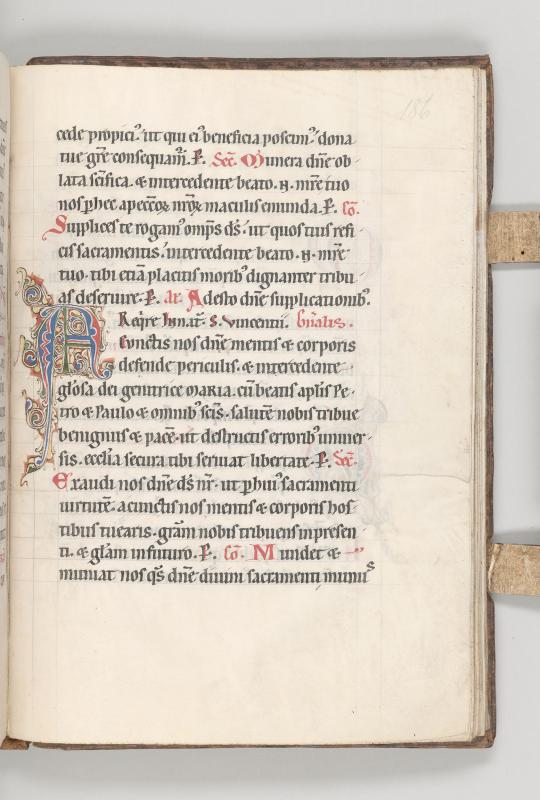 186
cede propiciꝰ. ut qui eiꝰ beneficia poscimꝰ. dona
tue gr̄e consequam̄. P. Sec̄. Munera dn̄e ob-
lata sc̄ifica. & intercedente beato. N. mr̄e tuo
nos p hec a pecc̄oꝝ nr̄oꝝ maculis emunda. P. Cō.
Supplices te rogamꝰ omp̄s ds̄. ut quos tuis refi-
cis sacramentis. intercedente beato. N. mr̄e
tuo. tibi etiā placitis moribꝰ dignanter tribu-
as deseruire. P. al. Adesto dn̄e supplicationibꝰ.
Req̄re in nat̄. S. Vincentii. Gn̄alis.
A cunctis nos dn̄e mentis & corporis
defende periculis. & intercedente
gl̄osa dei genitrice MARIA. cū beatis apl̄is Pe-
tro & Paulo & omnibꝰ sc̄is. salutē nobis tribue
benignus & pacē. ut destructis erroribꝰ univer-
sis. eccl̄ia secura tibi seruiat libertate. P. Sec̄.
Exaudi nos dn̄e ds̄ nr̄. ut p huiꝰ sacramenti
uirtutē. a cunctis nos mentis & corporis hos-
tibus tuearis. gr̄am nobis tribuens in presen-
ti. & gl̄am in futuro. P. Cō. Mundet &
muniat nos q̄s dn̄e diuini sacramenti munus